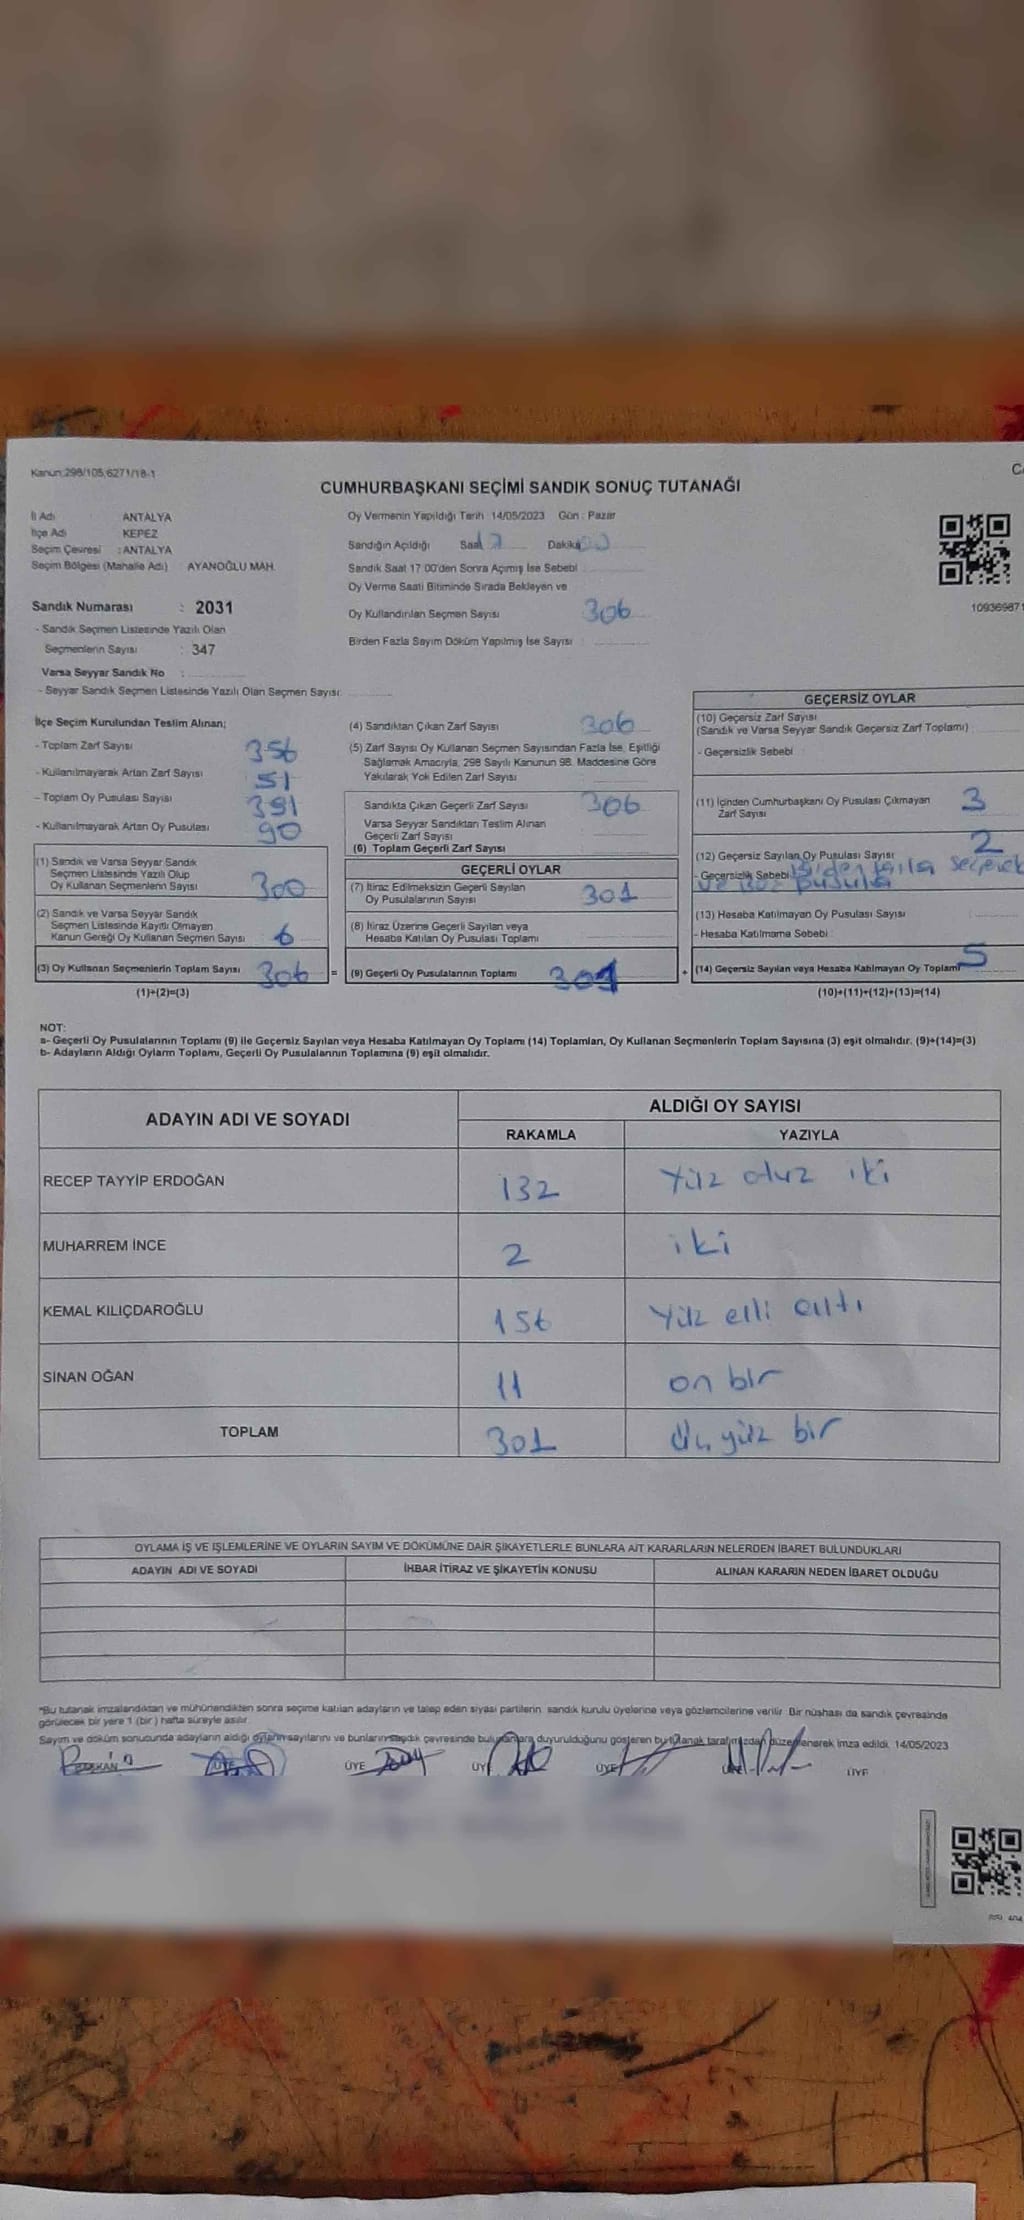 Kanun:298/105,6271/18-1
CUMHURBAŞKANI SEÇİMİ SANDIK SONUÇ TUTANAĞI
İl Adı : ANTALYA
İlçe Adı KEPEZ
Seçim Çevresi : ANTALYA
Seçim Bölgesi (Mahalle Adı) AYANOĞLU MAH.
Sandık Numarası : 2031
- Sandık Seçmen Listesinde Yazılı Olan
Seçmenlerin Sayısı : 347
Varsa Seyyar Sandık No :
- Seyyar Sandık Seçmen Listesinde Yazılı Olan Seçmen Sayısı:
Oy Vermenin Yapıldığı Tarih : 14/05/2023 Gün : Pazar
Sandığın Açıldığı Saat 17 Dakika
Sandık Saat 17 00'den Sonra Açımış İse Sebebi
Oy Verme Saati Bitiminde Sırada Bekleyen ve
Oy Kullandırılan Seçmen Sayısı 306
Birden Fazla Sayım Döküm Yapılmış İse Sayısı :
109369871
İlçe Seçim Kurulundan Teslim Alınan;
- Toplam Zarf Sayısı 356
- Kullanılmayarak Artan Zarf Sayısı 51
- Toplam Oy Pusulası Sayısı 391
- Kullanılmayarak Artan Oy Pusulası 90
(1) Sandık ve Varsa Seyyar Sandık
Seçmen Listesinde Yazılı Olup
Oy Kullanan Seçmenlerin Sayısı 300
(2) Sandık ve Varsa Seyyar Sandık
Seçmen Listesinde Kayıtlı Olmayan
Kanun Gereği Oy Kullanan Seçmen Sayısı 6
(3) Oy Kullanan Seçmenlerin Toplam Sayısı 306 =
(1)+(2)=(3)
(4) Sandıktan Çıkan Zarf Sayısı 306
(5) Zarf Sayısı Oy Kullanan Seçmen Sayısından Fazla İse, Eşitliği
Sağlamak Amacıyla, 298 Sayılı Kanunun 98. Maddesine Göre
Yakılarak Yok Edilen Zarf Sayısı
Sandıkta Çıkan Geçerli Zarf Sayısı 306
Varsa Seyyar Sandıktan Teslim Alınan
Geçerli Zarf Sayısı
(6) Toplam Geçerli Zarf Sayısı
GEÇERLİ OYLAR
(7) İtiraz Edilmeksizin Geçerli Sayılan
Oy Pusulalarının Sayısı 301
(8) İtiraz Üzerine Geçerli Sayılan veya
Hesaba Katılan Oy Pusulası Toplamı
(9) Geçerli Oy Pusulalarının Toplamı 301 +
GEÇERSİZ OYLAR
(10) Geçersiz Zarf Sayısı
(Sandık ve Varsa Seyyar Sandık Geçersiz Zarf Toplamı)
- Geçersizlik Sebebi
(11) İçinden Cumhurbaşkanı Oy Pusulası Çıkmayan
Zarf Sayısı 3
(12) Geçersiz Sayılan Oy Pusulası Sayısı 2
- Geçersizlik Sebebi Birden fazla seçenek
ve boş pusula
(13) Hesaba Katılmayan Oy Pusulası Sayısı
- Hesaba Katılmama Sebebi
(14) Geçersiz Sayılan veya Hesaba Katılmayan Oy Toplamı 5
(10)+(11)+(12)+(13)=(14)
NOT:
a- Geçerli Oy Pusulalarının Toplamı (9) ile Geçersiz Sayılan veya Hesaba Katılmayan Oy Toplamı (14) Toplamları, Oy Kullanan Seçmenlerin Toplam Sayısına (3) eşit olmalıdır. (9)+(14)=(3)
b- Adayların Aldığı Oyların Toplamı, Geçerli Oy Pusulalarının Toplamına (9) eşit olmalıdır.
ADAYIN ADI VE SOYADI ALDIĞI OY SAYISI
RAKAMLA YAZIYLA
RECEP TAYYİP ERDOĞAN 132 Yüz otuz iki
MUHARREM İNCE 2 iki
KEMAL KILIÇDAROĞLU 156 Yüz elli altı
SİNAN OĞAN 11 on bir
TOPLAM 301 Üç yüz bir
OYLAMA İŞ VE İŞLEMLERİNE VE OYLARIN SAYIM VE DÖKÜMÜNE DAİR ŞİKAYETLERLE BUNLARA AİT KARARLARIN NELERDEN İBARET BULUNDUKLARI
ADAYIN ADI VE SOYADI İHBAR İTİRAZ VE ŞİKAYETİN KONUSU ALINAN KARARIN NEDEN İBARET OLDUĞU
*Bu tutanak imzalandıktan ve mühürlendikten sonra seçime katılan adayların ve talep eden siyasi partilerin sandık kurulu üyelerine veya gözlemcilerine verilir. Bir nüshası da sandık çevresinde
görülecek bir yere 1 (bir) hafta süreyle asılır.
Sayım ve döküm sonucunda adayların aldığı oyların sayılarını ve bunların sandık çevresinde bulunanlara duyurulduğunu gösteren bu tutanak tarafımızdan düzenlenerek imza edildi. 14/05/2023
BAŞKAN ÜYE ÜYE ÜYE ÜYE ÜYE ÜYE